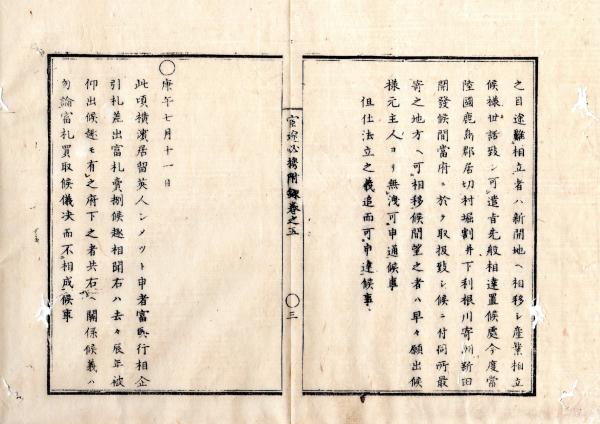 之目途難相立者ハ新開地ヘ相移シ産業相立
候様世話致シ可遣旨先般相達置候處今度常
陸國鹿島郡居切村堀割并下利根川寄洲新田
開發候間當府ニ於テ取扱致シ候ニ付伺所最
寄之地方ヘ可相移候間望之者ハ早々願出候
様元主人ヨリ無洩可申通候事
但仕法立之義追而可申達候事
官途必携附録巻之五
三
庚午七月十一日
此頃横濱居留英人ンメツト申者富興行相企
引札差出富札賣捌候趣相聞右ハ去々辰年被
仰出候趣モ有之府下之者共右ヘ關係候義ハ
勿論富札買取候儀决而不相成候事